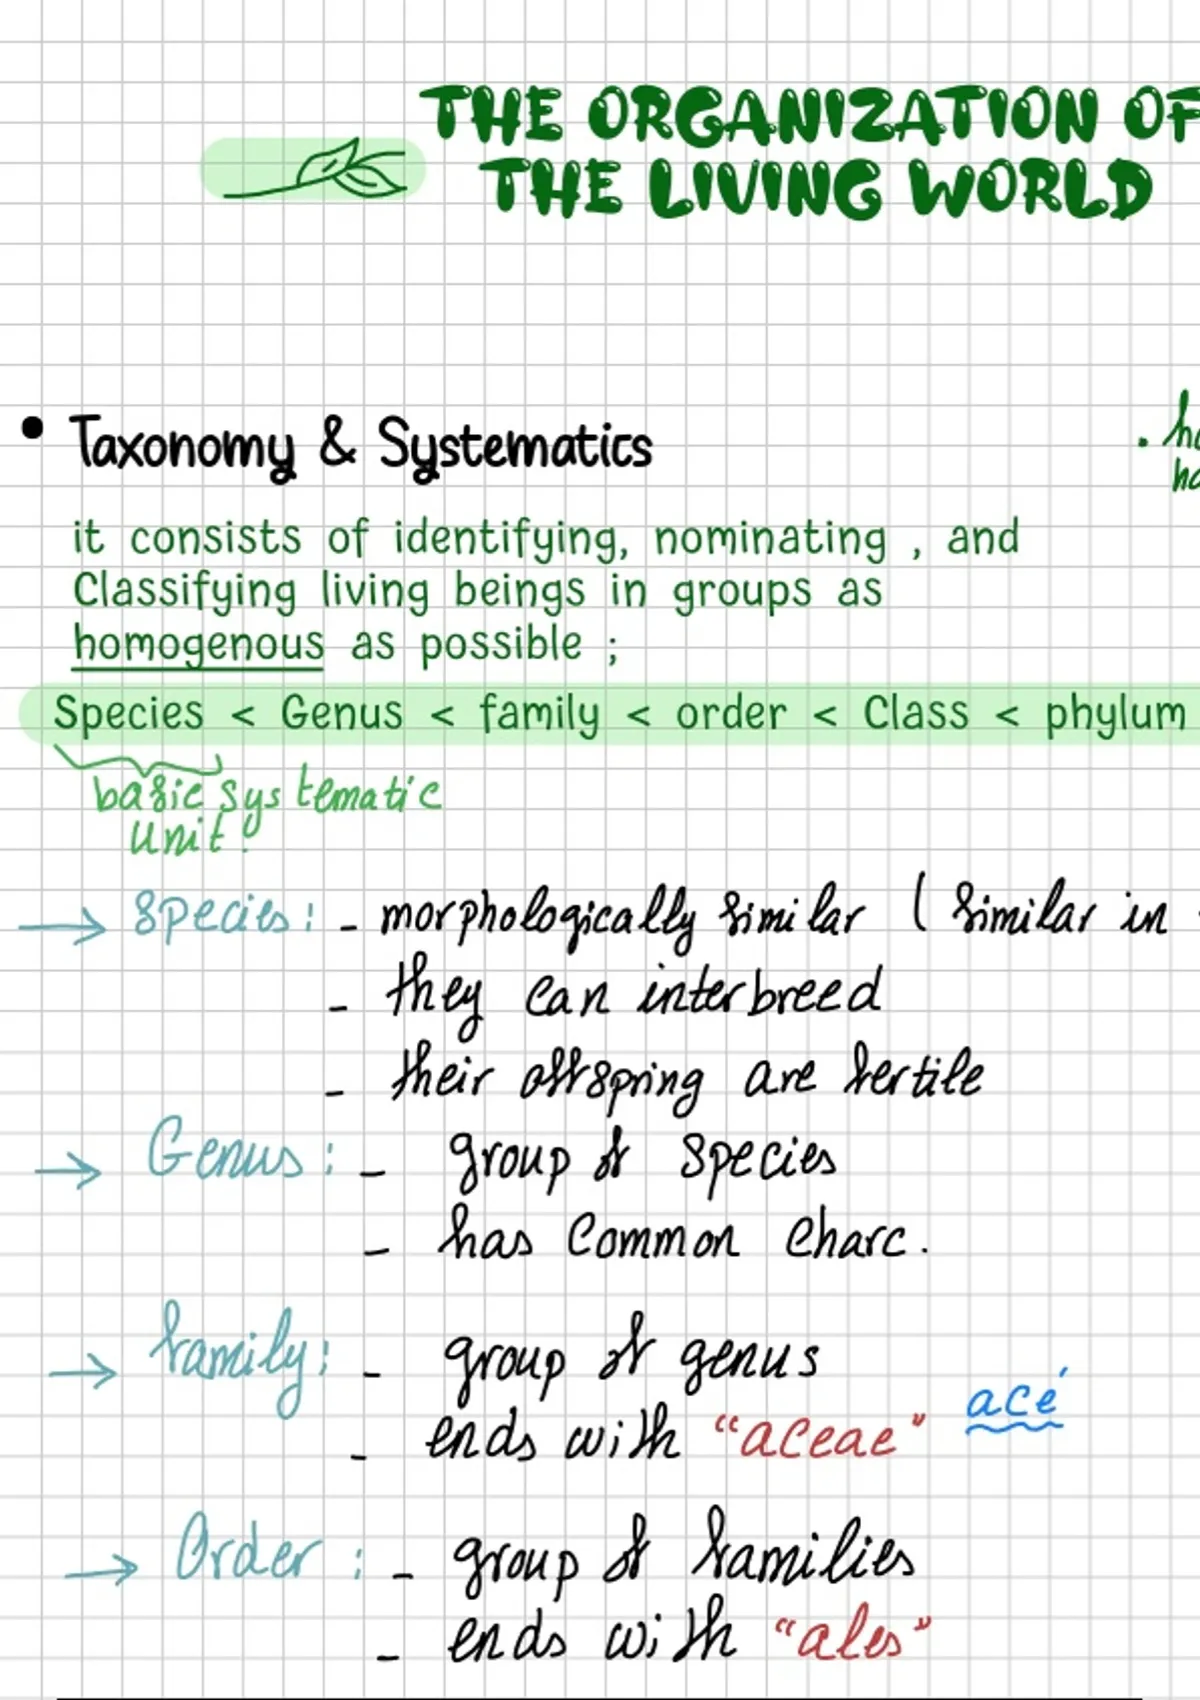 THE ORGANIZATION OF
THE LIVING WORLD
• Taxonomy & Systematics
it consists of identifying, nominating , and
Classifying living beings in groups as
homogenous as possible ;
Species < Genus < family < order < Class < phylum
basic systematic
unit!
→ species: - morphologically similar ( similar in
- they can interbreed
- their offspring are fertile
→ Genus: - group of species
- has Common Charc.
→ family: - group of genus
- ends with "aceae" acé
→ Order : - group of families
- ends with "ales"